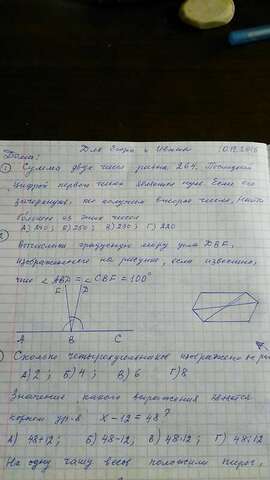 Для Софи и Ивана 10.12.2016
Дома:
① Сумма двух чисел равна 264. Последней
цифрой первого числа является нуль. Если его
зачеркнуть, то получим второе число. Найти
большее из этих чисел
А) 240; Б) 250; В) 230; Г) 220
2
Вычислить градусную меру угла DBF,
изображённого на рисунке, если известно,
что ∠ABD = ∠CBF = 100°
F D
A B C
Сколько четырёхугольников изображено на
А) 2; Б) 4; В) 6 Г) 8
Значение какого выражения является
корнем ур-я x - 12 = 48?
А) 48+12; Б) 48-12; В) 48·12; Г) 48:12
На одну чашу весов положили пирог,